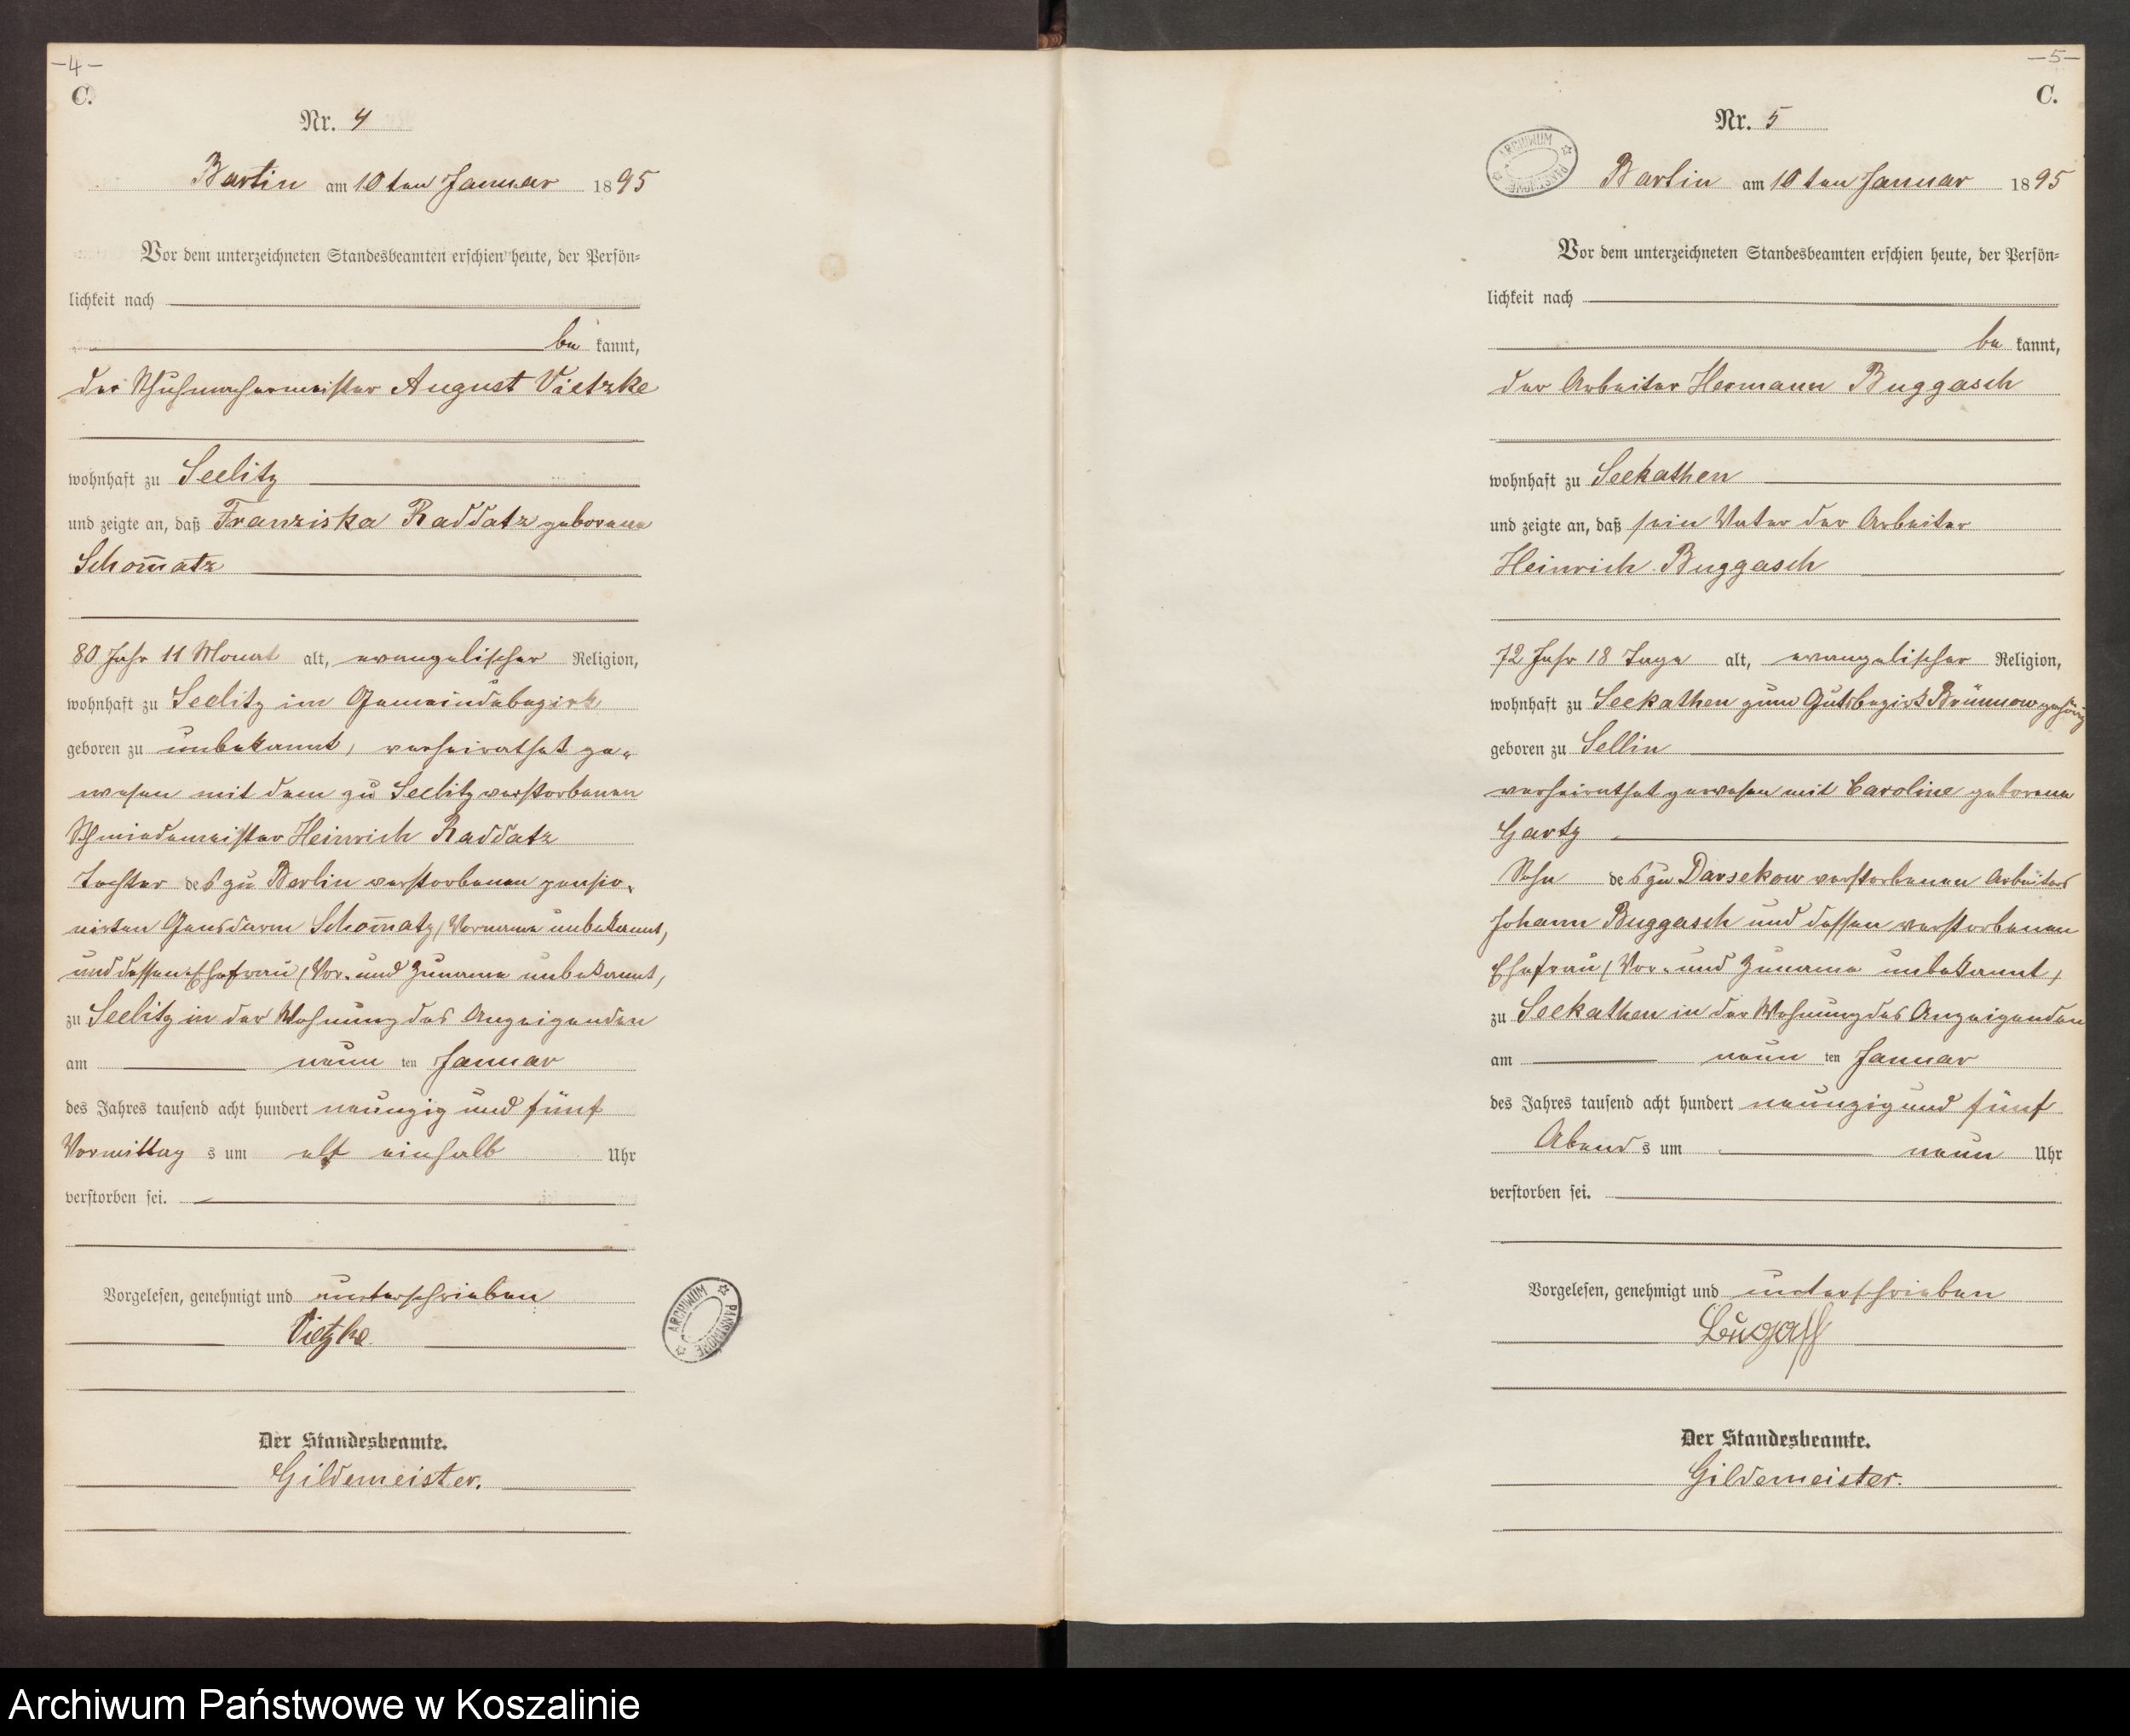 -4-
C.
Nr. 4
Bartin am 10ten Januar 1895
Vor dem unterzeichneten Standesbeamten erschien heute, der Persön=
lichkeit nach
be kannt,
der Schuhmachermeister August Vietzke
wohnhaft zu Seelitz
und zeigte an, daß Franziska Raddatz geborene
Schom̄atz
80 Jahr 11 Monat alt, evangelischer Religion,
wohnhaft zu Seelitz im Gemeindebezirk
geboren zu unbekannt, verheirathet ge„
wesen mit dem zu Seelitz verstorbenen
Schmiedemeister Heinrich Raddatz
Tochter des zu Berlin verstorbenen pensio„
nirten Gensdarm Schom̄atz, (Vorname unbekannt,
und dessen Ehefrau, (Vor- und Zuname unbekannt,
zu Seelitz in der Wohnung des Anzeigenden
am neun ten Januar
des Jahres tausend acht hundert neunzig und fünf
Vormittag s um elf einhalb Uhr
verstorben sei.
Vorgelesen, genehmigt und unterschrieben
Vietzke
Der Standesbeamte.
Gildemeister.
ARCHIWUM PAŃSTWOWE
-5-
C.
Nr. 5
ARCHIWUM PAŃSTWOWE
Bartin am 10ten Januar 1895
Vor dem unterzeichneten Standesbeamten erschien heute, der Persön=
lichkeit nach
be kannt,
der Arbeiter Hermann Buggasch
wohnhaft zu Seekathen
und zeigte an, daß sein Vater der Arbeiter
Heinrich Buggasch
72 Jahr 18 Tage alt, evangelischer Religion,
wohnhaft zu Seekathen zum Gutsbezirk Brünnow gehörig
geboren zu Sellin
verheirathet gewesen mit Caroline geborene
Gartz
Sohn des zu Darsekow verstorbenen Arbeiters
Johann Buggasch und dessen verstorbenen
Ehefrau (Vor- und Zuname unbekannt,
zu Seekathen in der Wohnung des Anzeigenden
am neun ten Januar
des Jahres tausend acht hundert neunzig und fünf
Abend s um neun Uhr
verstorben sei.
Vorgelesen, genehmigt und unterschrieben
Der Standesbeamte.
Gildemeister.
Archiwum Państwowe w Koszalinie